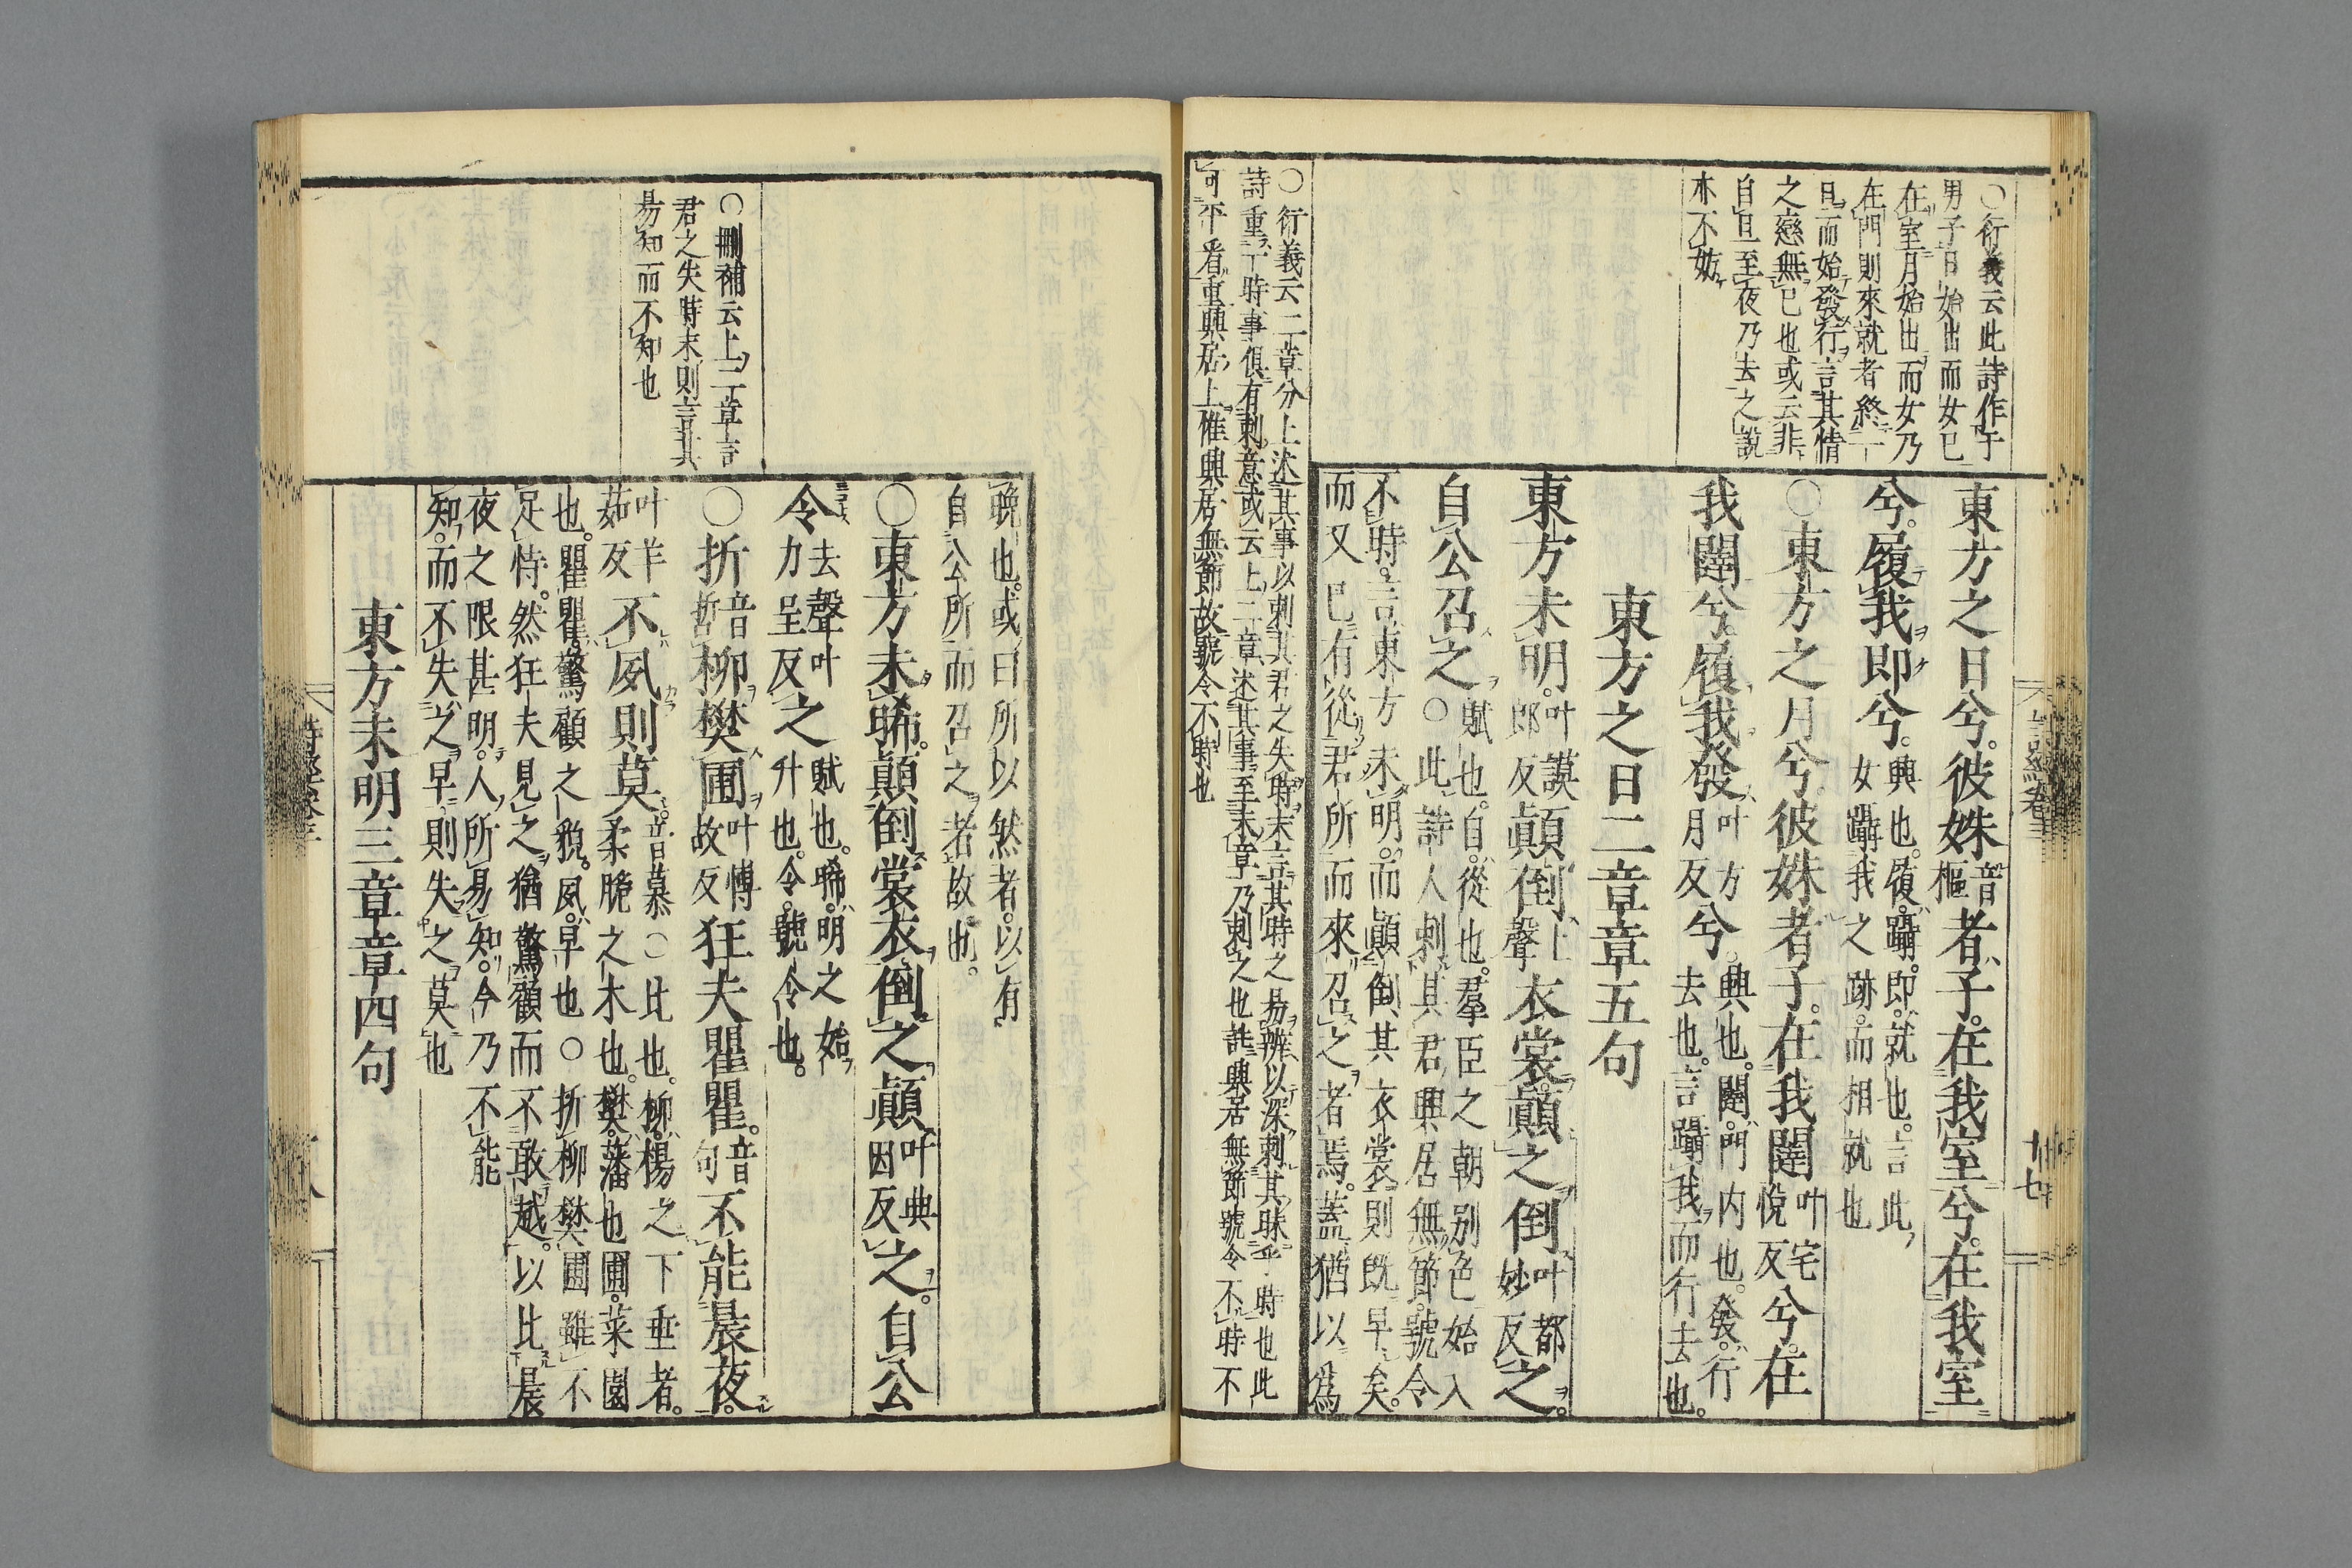 ○衍義云此詩作于
男子日始出而女已
在室月始出而女乃
在門則來就者終一
旦而始發行言其情
之戀無已也或云非
自旦至夜乃去之說
木不妨
東方之日兮。彼姝音樞者子。在我室兮。在我室
兮。履我即兮。興也。履。躡。即。就也。言此女躡我之跡。而相就也
○東方之月兮。彼姝者子。在我闥叶宅悅反兮。在
我闥兮。履我發叶方月反兮。興也。闥。門内也。發。行去也。言躡我而行去也。
東方之日二章章五句
東方未明。叶謨郎反顛倒上聲衣裳。顛之倒叶都妙反之。
自公召之。賦也。自。從也。羣臣之朝別色始入○此詩人刺其君興居無節。號令
不時。言東方未明。而顛倒其衣裳則既早矣。
而又已有從君所而來召之者焉。蓋猶以爲
○衍義云二章分上述其事以刺其君之失時末言其時之易辨以深刺其昧乎時也此
詩重丁時事俱有刺意或云上二章述其事至末章乃刺之也註興居無節號令不時不
可平看重興居上惟興居無節故號令不時也
晚也。或曰所以然者。以有
自公所而召之者故也。
○東方未晞。顛倒裳衣。倒之顛叶典因反之。自公
令去聲叶力呈反之賦也。晞。明之始升也。令。號令也。
○折音哲柳樊圃叶博故反狂夫瞿瞿。音句不能晨夜。
叶羊茹反不夙則莫。音慕○比也。柳。楊之下垂者。柔脆之木也。樊。藩也圃。菜園
也。瞿瞿。驚顧之貌。夙。早也○折柳樊圃雖不
足恃。然狂夫見之猶驚顧而不敢越。以比晨
夜之限甚明。人所易知。今乃不能
知。而不失之早則失之莫也
東方未明三章章四句
○刪補云上二章言
君之失時末則言其
易知而不知也
詩經卷三